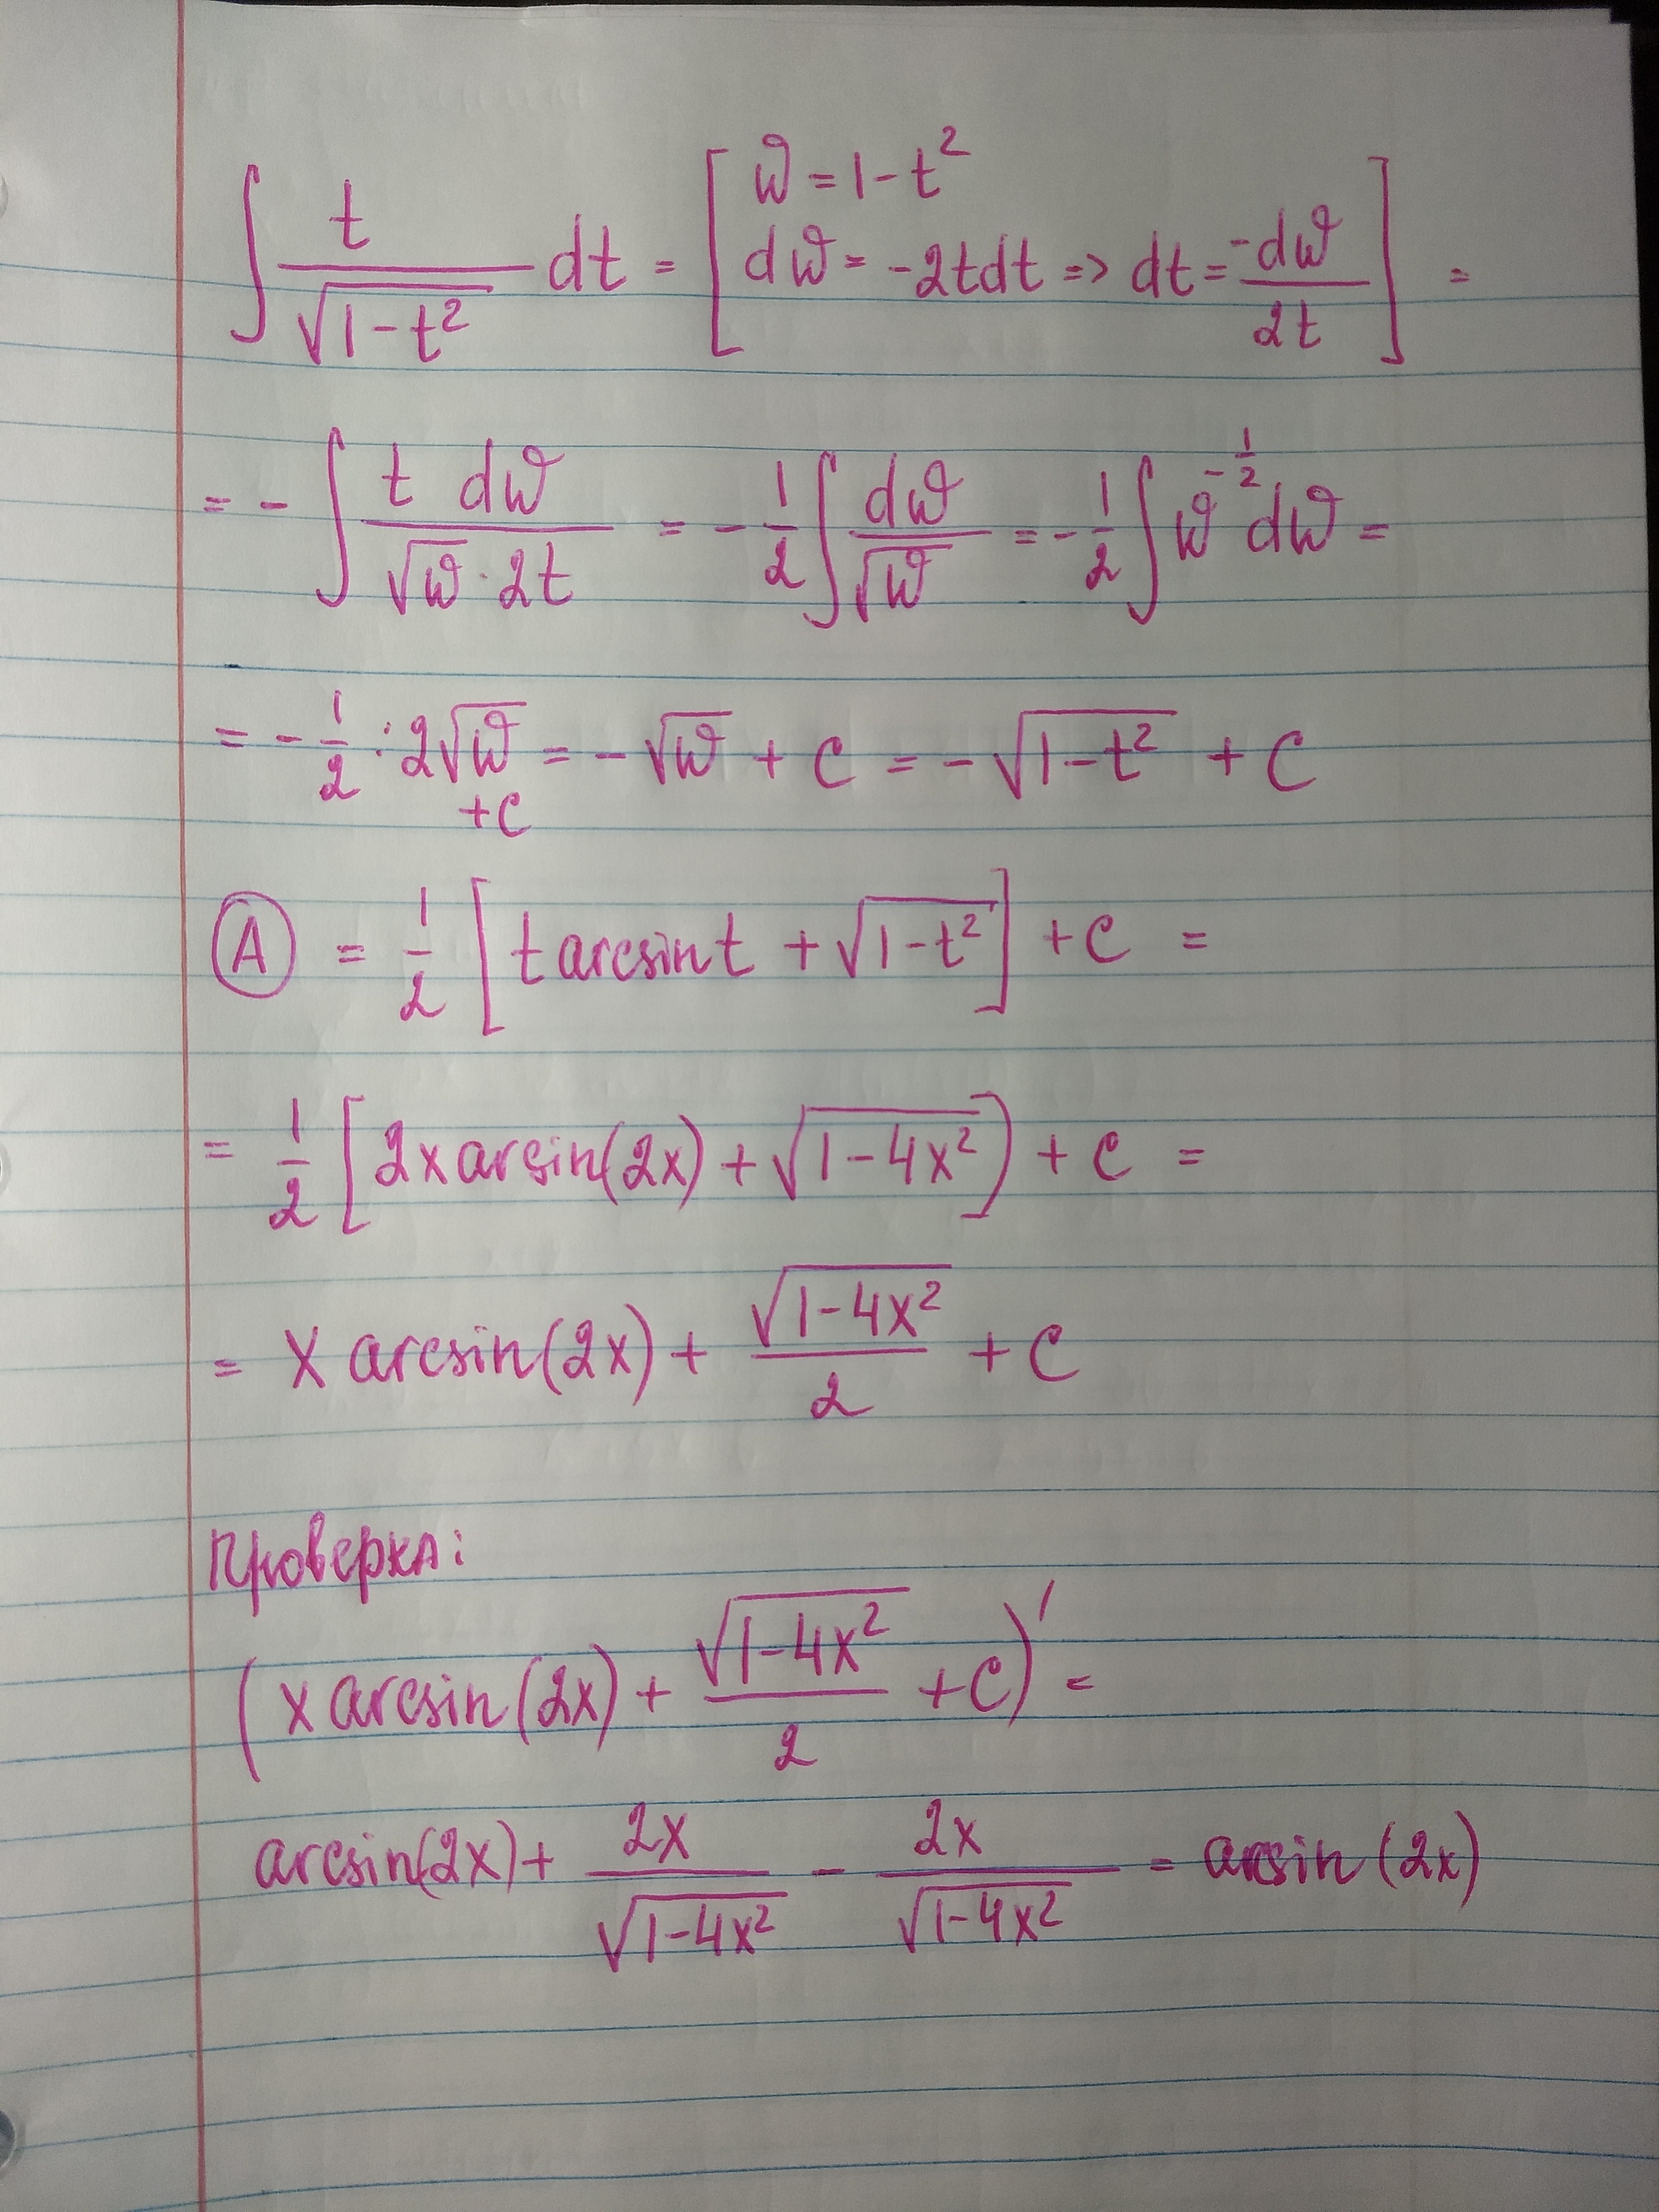 ∫ t/√(1-t²) dt = [ w = 1-t²
dw = -2tdt => dt = -dw/2t ] =
= - ∫ t dw/(√w · 2t) = - 1/2 ∫ dw/√w = - 1/2 ∫ w^(-1/2) dw =
= - 1/2 · 2√w + C = - √w + C = - √(1-t²) + C
(A) = 1/2 [ t arcsin t + √(1-t²) ] + C =
= 1/2 [ 2x arcsin(2x) + √(1-4x²) ] + C =
= x arcsin(2x) + √(1-4x²)/2 + C
Проверка:
( x arcsin(2x) + √(1-4x²)/2 + C )' =
arcsin(2x) + 2x/√(1-4x²) - 2x/√(1-4x²) = arcsin (2x)